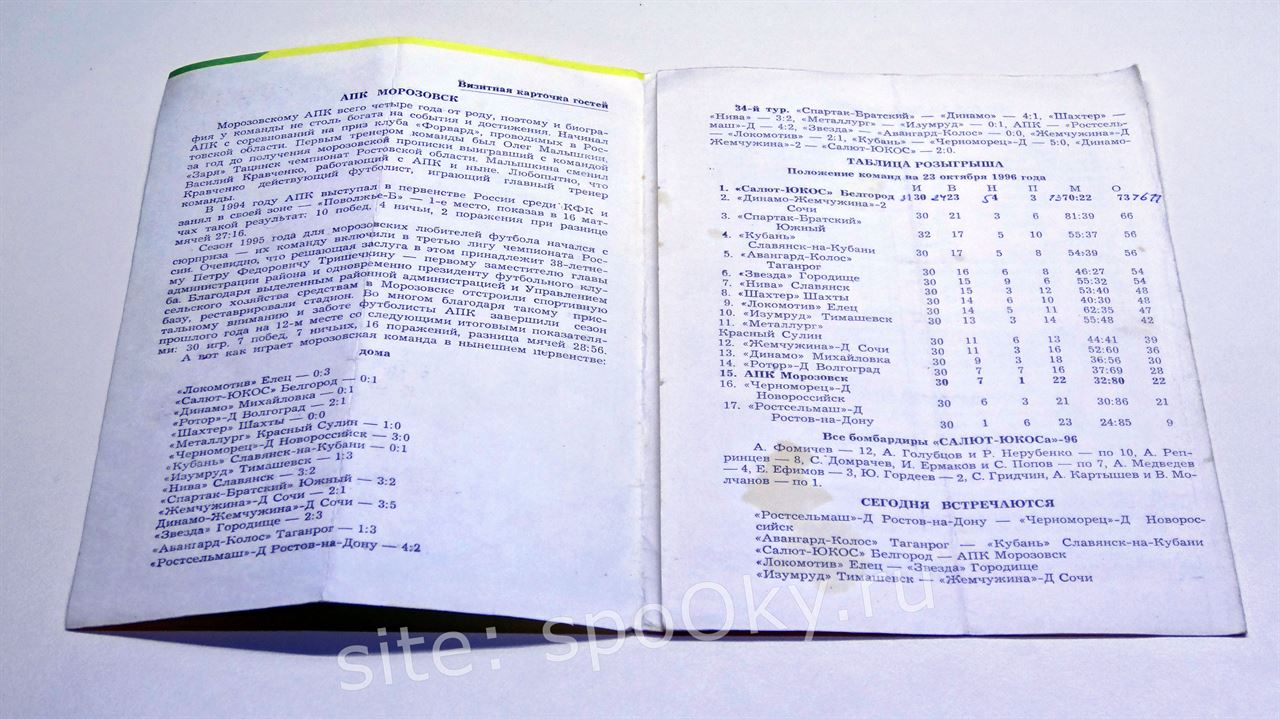 Визитная карточка гостей
АПК МОРОЗОВСК
Морозовскому АПК всего четыре года от роду, поэтому и биогра-
фия у команды не столь богата на события и достижения. Начинал
АПК с соревнований на приз клуба «Форвард», проводимых в Рос-
товской области. Первым тренером команды был Олег Малышкин,
за год до получения морозовской прописки выигравший с командой
«Заря» Тацинск чемпионат Ростовской области. Малышкина сменил
Василий Кравченко, работающий с АПК и ныне. Любопытно, что
Кравченко действующий футболист, играющий главный тренер
команды.
В 1994 году АПК выступал в первенстве России среди КФК и
занял в своей зоне — «Поволжье-Б» — 1-е место, показав в 16 мат-
чах такой результат: 10 побед, 4 ничьи, 2 поражения при разнице
мячей 27:16.
Сезон 1995 года для морозовских любителей футбола начался с
сюрприза — их команду включили в третью лигу чемпионата Рос-
сии. Очевидно, что решающая заслуга в этом принадлежит 38-летне-
му Петру Федоровичу Тришечкину — первому заместителю главы
администрации района и одновременно президенту футбольного клу-
ба. Благодаря выделенным районной администрацией и Управлением
сельского хозяйства средствам в Морозовске отстроили спортивную
базу, реставрировали стадион. Во многом благодаря такому прис-
тальному вниманию и заботе футболисты АПК завершили сезон
прошлого года на 12-м месте со следующими итоговыми показателя-
ми: 30 игр, 7 побед, 7 ничьих, 16 поражений, разница мячей 28:56.
А вот как играет морозовская команда в нынешнем первенстве:
дома
«Локомотив» Елец — 0:3
«Салют-ЮКОС» Белгород — 0:1
«Динамо» Михайловка — 0:1
«Ротор»-Д Волгоград — 2:1
«Шахтер» Шахты — 0:0
«Металлург» Красный Сулин — 1:0
«Черноморец»-Д Новороссийск — 3:0
«Кубань» Славянск-на-Кубани — 0:1
«Изумруд» Тимашевск — 1:3
«Нива» Славянск — 3:2
«Спартак-Братский» Южный — 3:2
«Жемчужина»-Д Сочи — 2:1
Динамо-Жемчужина»-Д Сочи — 3:5
«Звезда» Городище — 2:3
«Авангард-Колос» Таганрог — 1:3
«Ростсельмаш»-Д Ростов-на-Дону — 4:2
34-й тур. «Спартак-Братский» — «Динамо» — 4:1, «Шахтер» —
«Нива» — 3:2, «Металлург» — «Изумруд» — 0:1, АПК — «Ростсель-
маш»-Д — 4:2, «Звезда» — «Авангард-Колос» — 0:0, «Жемчужина»-Д
— «Локомотив» — 2:1, «Кубань» — «Черноморец»-Д — 5:0, «Динамо-
Жемчужина»-2 — «Салют-ЮКОС» — 2:0.
ТАБЛИЦА РОЗЫГРЫША
Положение команд на 23 октября 1996 года
И В Н П М О
1. «Салют-ЮКОС» Белгород 30 23 4 3 70:22 73
2. «Динамо-Жемчужина»-2
Сочи 30 21 3 6 81:39 66
3. «Спартак-Братский»
Южный 32 17 5 10 55:37 56
4. «Кубань»
Славянск-на-Кубани 30 17 5 8 54:39 56
5. «Авангард-Колос»
Таганрог 30 16 6 8 46:27 54
6. «Звезда» Городище 30 15 9 6 55:32 54
7. «Нива» Славянск 30 15 3 12 53:40 48
8. «Шахтер» Шахты 30 14 6 10 40:30 48
9. «Локомотив» Елец 30 14 5 11 62:35 47
10. «Изумруд» Тимашевск 30 13 3 14 55:48 42
11. «Металлург»
Красный Сулин 30 11 6 13 44:41 39
12. «Жемчужина»-Д Сочи 30 11 3 16 52:60 36
13. «Динамо» Михайловка 30 9 3 18 36:56 30
14. «Ротор»-Д Волгоград 30 7 7 16 37:69 28
15. АПК Морозовск 30 7 1 22 32:80 22
16. «Черноморец»-Д
Новороссийск 30 6 3 21 30:86 21
17. «Ростсельмаш»-Д
Ростов-на-Дону 30 1 6 23 24:85 9
Все бомбардиры «САЛЮТ-ЮКОСа»-96
А. Фомичев — 12, А. Голубцов и Р. Нерубенко — по 10, А. Реп-
ринцев — 8, С. Домрачев, И. Ермаков и С. Попов — по 7, А. Медведев
— 4, Е. Ефимов — 3, Ю. Гордеев — 2, С. Гридчин, А. Картышев и В. Мо-
лчанов — по 1.
СЕГОДНЯ ВСТРЕЧАЮТСЯ
«Ростсельмаш»-Д Ростов-на-Дону — «Черноморец»-Д Новорос-
сийск
«Авангард-Колос» Таганрог — «Кубань» Славянск-на-Кубани
«Салют-ЮКОС» Белгород — АПК Морозовск
«Локомотив» Елец — «Звезда» Городище
«Изумруд» Тимашевск — «Жемчужина»-Д Сочи
site: spoOky.ru